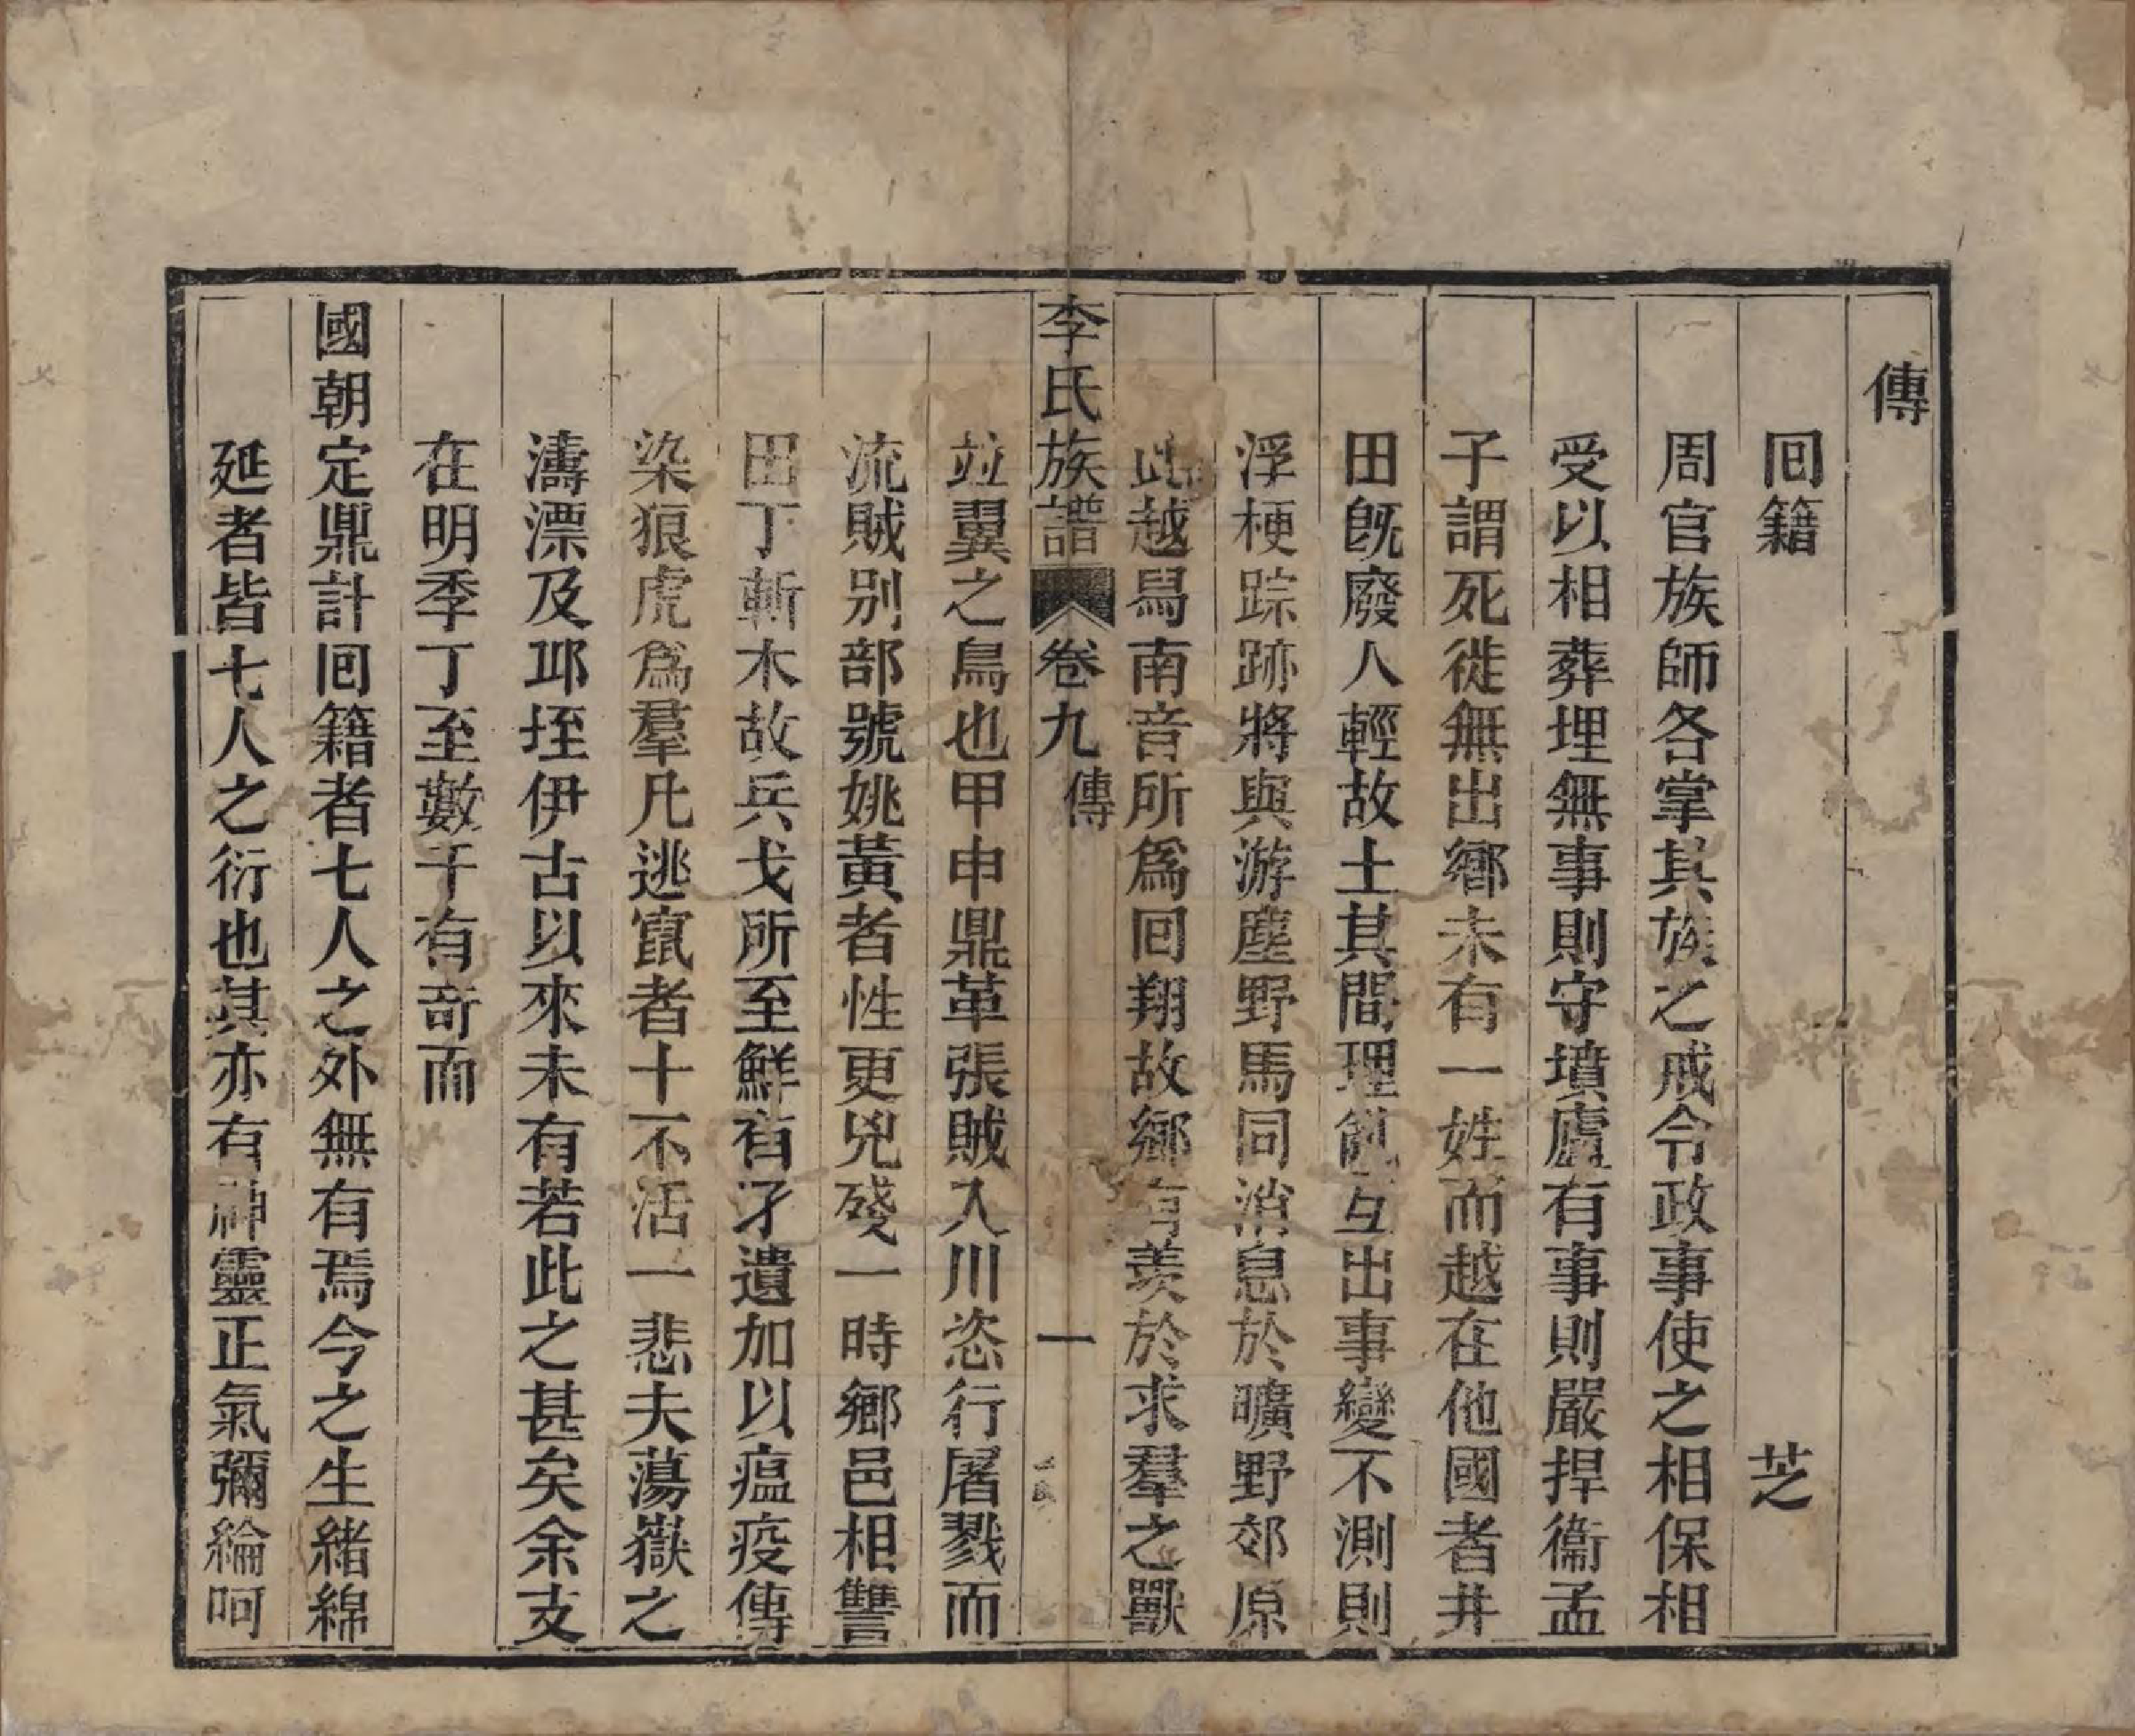 傳
囘籍 芝
周官族師各掌其族之戒令政事使之相保相
受以相葬埋無事則守墳廬有事則嚴捍衞孟
子謂死徙無出鄉未有一姓而越在他國者井
田旣廢人輕故土其間理亂互出事變不測則
浮梗踪跡將與游塵野馬同消息於曠野郊原
此越舃南音所爲囘翔故鄉有羨於求羣之獸
李氏族譜 卷九 傳 一
竝翼之鳥也甲申鼎革張賊入川恣行屠戮而
流賊别部號姚黃者性更兇殘一時鄉邑相讐
田丁斬木故兵戈所至鮮有孑遺加以瘟疫傳
染狼虎爲羣凡逃竄者十不活一悲夫蕩嶽之
濤漂及邛垤伊古以來未有若此之甚矣余支
在明季丁至數千有奇而
國朝定鼎計囘籍者七人之外無有焉今之生緖綿
延者皆七人之衍也其亦有神靈正氣彌綸呵